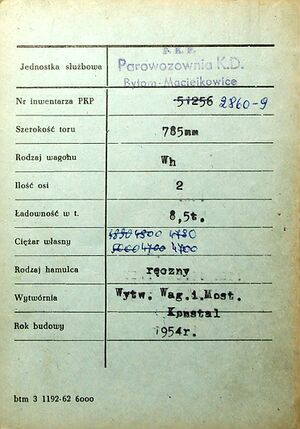 P. K. P.
Jednostka służbowa Parowozownia K.D.
Bytom-Maciejkowice
Nr inwentarza PKP 51256 2860-9
Szerokość toru 785mm
Rodzaj wagohu Wh
Ilość osi 2
Ładowność w t. 8,5t.
Ciężar własny 4800 4780
5000 4700 4700
Rodzaj hamulca ręczny
Wytwórnia Wytw. Wag.i.Most.
Kpnstal
Rok budowy 1954r.
btm 3 1192-62 6000